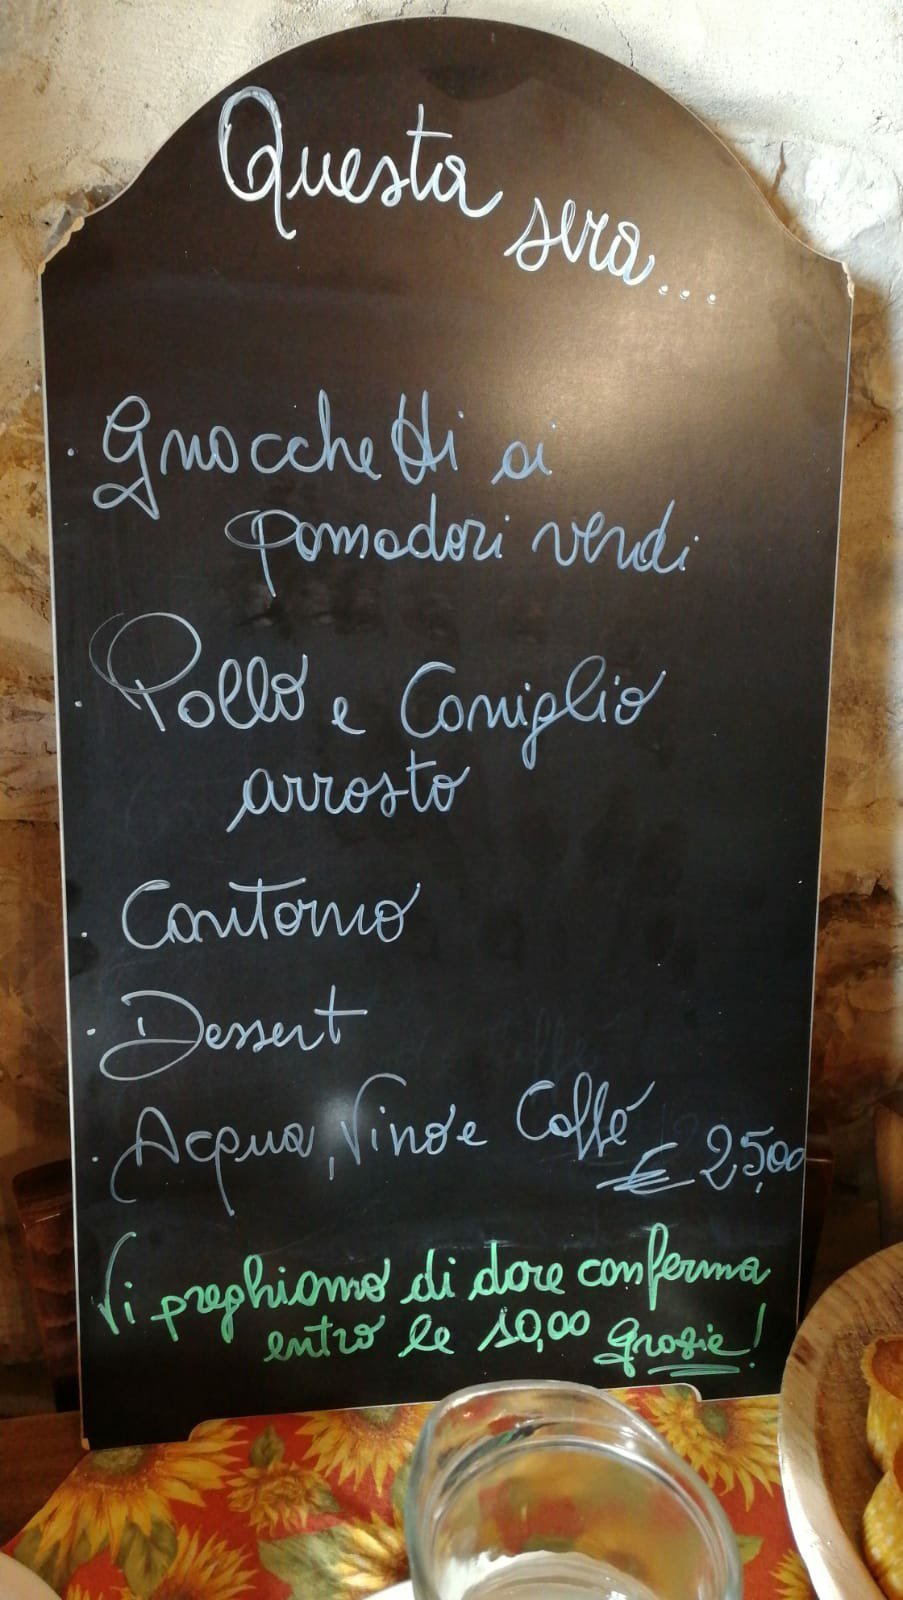 Questa sera...
· Gnocchetti ai
pomodori verdi
· Pollo e Coniglio
arrosto
· Contorno
· Dessert
· Acqua, Vino e Caffé
€ 25,00
Vi preghiamo di dare conferma
entro le 10,00 Grazie!